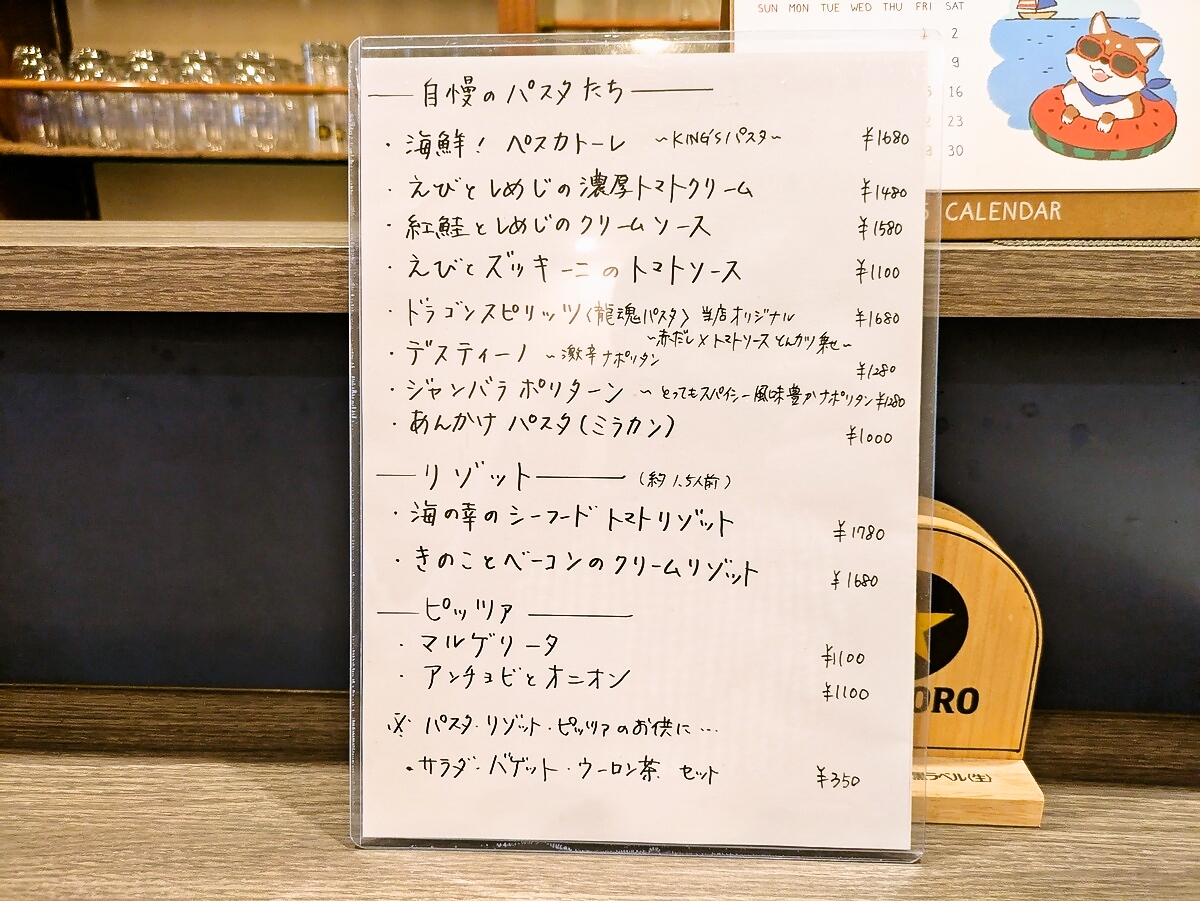 SUN MON TUE WED THU FRI SAT
2
9
16
23
30
CALENDAR
自慢のパスタたち
・海鮮！ペスカトーレ ~KING'Sパスタ~ ¥1680
・えびとしめじの濃厚トマトクリーム ¥1480
・紅鮭としめじのクリームソース ¥1580
・えびとズッキーニのトマトソース ¥1100
・ドラゴンスピリッツ〈龍魂パスタ〉当店オリジナル ¥1680
~赤だし×トマトソースとんカツ乗せ~
・デスティーノ ~激辛ナポリタン ¥1280
・ジャンバラポリターン ~とってもスパイシー風味豊かナポリタン ¥1280
・あんかけパスタ(ミラカン) ¥1000
リゾット (約1.5人前)
・海の幸のシーフードトマトリゾット ¥1780
・きのことベーコンのクリームリゾット ¥1680
ピッツァ
・マルゲリータ ¥1100
・アンチョビとオニオン ¥1100
※ パスタ・リゾット・ピッツァのお供に…
・サラダ・バゲット・ウーロン茶 セット ¥350
ORO
ラベル(生)